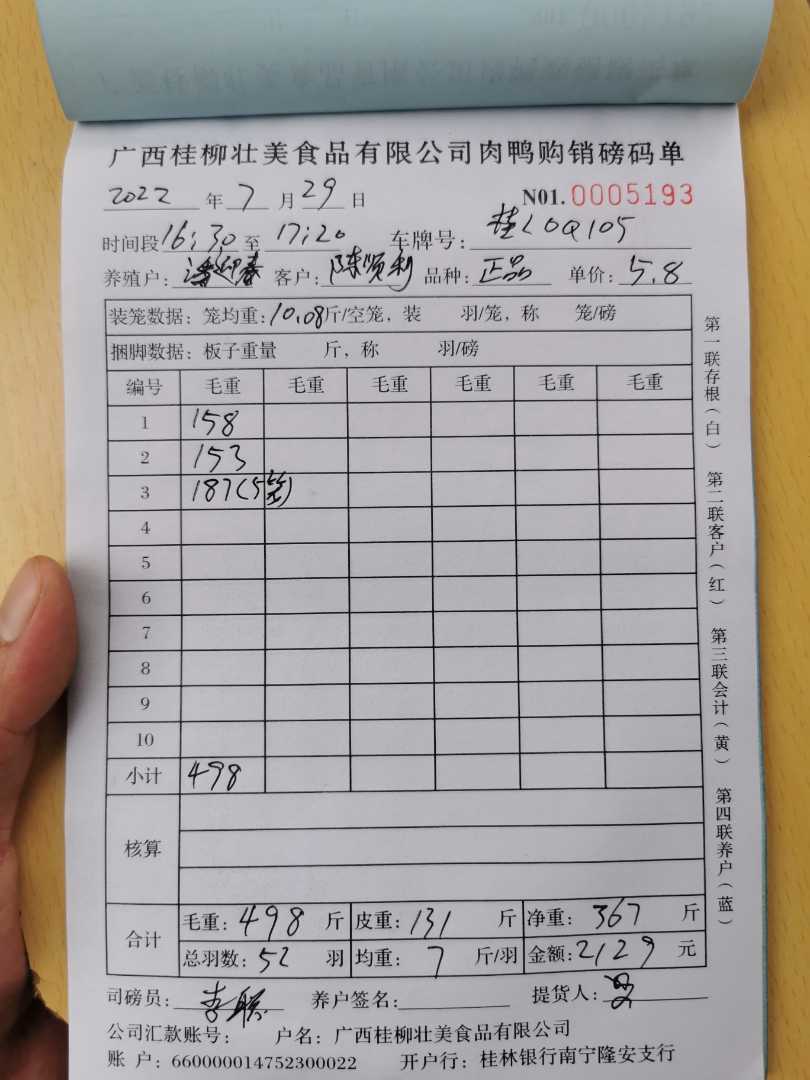 广西桂柳壮美食品有限公司肉鸭购销磅码单
2022 年 7 月 29 日 N01. 0005193
时间段 16:30 至 17:20 车牌号: 桂L0Q105
养殖户: 潘迎春 客户: 陈顺利 品种: 正品 单价: 5.8
装笼数据: 笼均重: 10.08 斤/空笼, 装 羽/笼, 称 笼/磅
捆脚数据: 板子重量 斤, 称 羽/磅
编号 毛重 毛重 毛重 毛重 毛重 毛重
1 158
2 153
3 187(5笼)
4
5
6
7
8
9
10
小计 498
核算
合计 毛重: 498 斤 皮重: 131 斤 净重: 367 斤
总羽数: 52 羽 均重: 7 斤/羽 金额: 2129 元
司磅员: 养户签名: 提货人:
公司汇款账号: 户名: 广西桂柳壮美食品有限公司
账 户: 660000014752300022 开户行: 桂林银行南宁隆安支行
第一联存根(白) 第二联客户(红) 第三联会计(黄) 第四联养户(蓝)